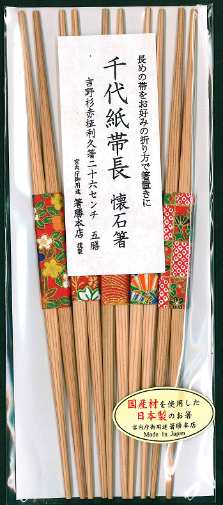 長めの帯をお好みの折り方で箸置きに
千代紙帯長 懐石箸
吉野杉赤柾利久箸二十六センチ 五膳
宮内庁御用達 箸勝本店 謹製
国産材を使用した
日本製のお箸
宮内庁御用達 箸勝本店
Made in Japan